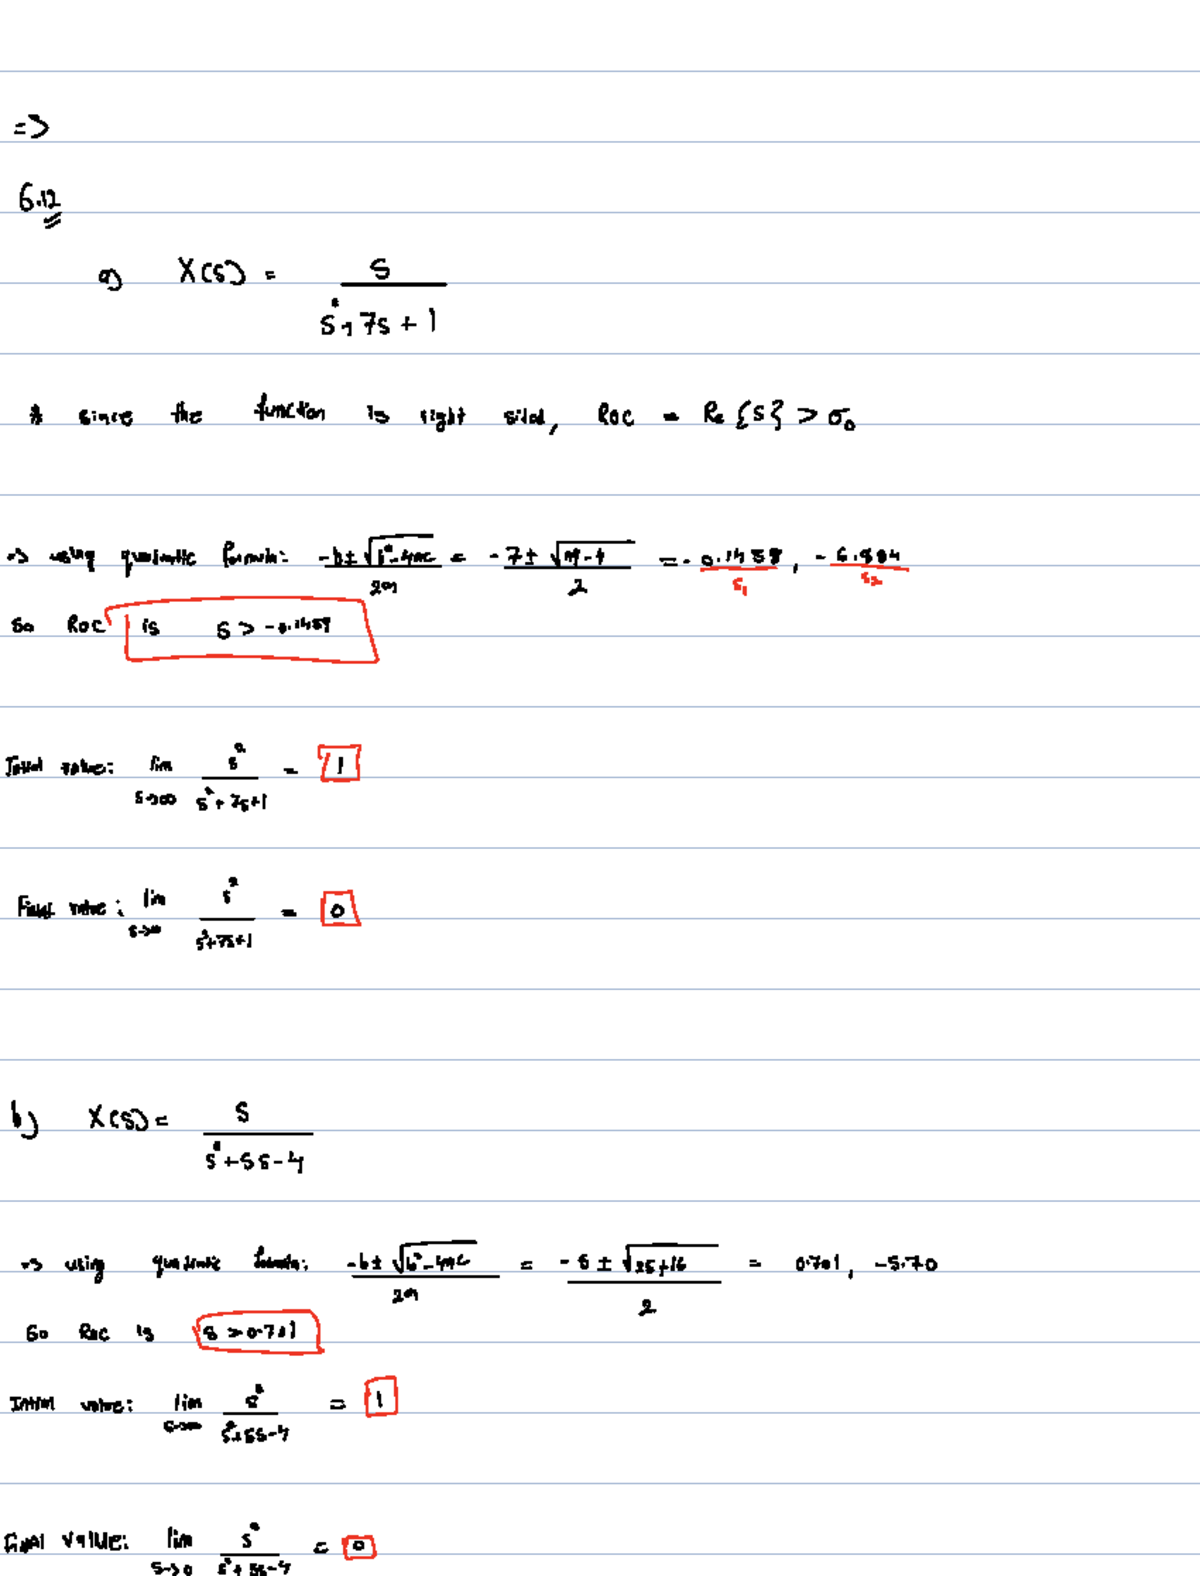 =>
6.12
a) X(s) = s / s²+7s+1
* since the function is right sided, ROC = Re{s} > σ₀
=> using quadratic formula: -b±√b²-4ac / 2a = -7±√49-4 / 2 = -0.1458, -6.854
s₁ s₂
So ROC is s > -0.1459
Initial value: lim s→∞ s² / s²+7s+1 = 1
Final value: lim s² / s²+7s+1 = 0
b) X(s) = s / s²+5s-4
=> using quadratic formula: -b±√b²-4ac / 2a = -5±√25+16 / 2 = 0.701, -5.70
So ROC is s > 0.701
Initial value: lim s→∞ s² / s²+5s-4 = 1
Final value: lim s→0 s² / s²+5s-4 = 0